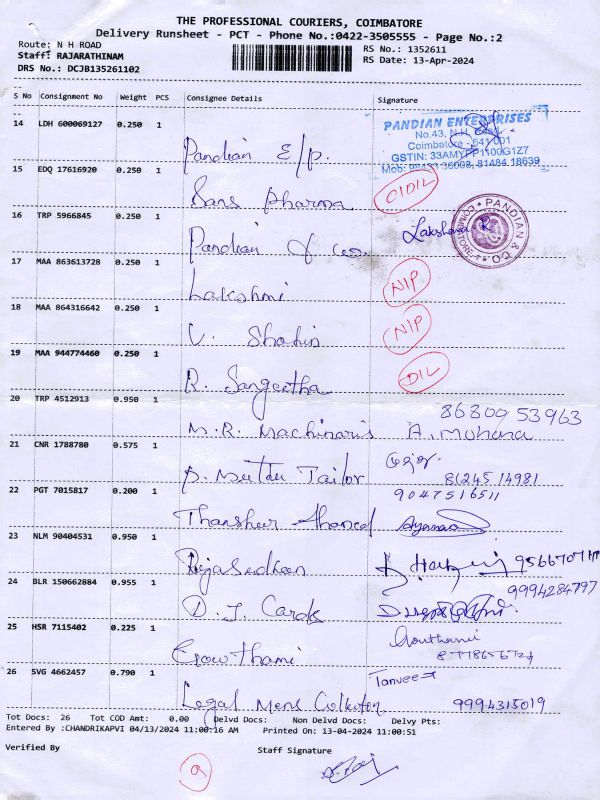 THE PROFESSIONAL COURIERS, COIMBATORE
Delivery Runsheet - PCT - Phone No.:0422-3505555 - Page No.:2
Route: N H ROAD
RS No.: 1352611
Staff: RAJARATHINAM
RS Date: 13-Apr-2024
DRS No.: DCJB135261102
S No Consignment No Weight PCS Consignee Details Signature
14 LDH 600069127 0.250 1 Pandian E/p.
PANDIAN ENTERPRISES
No.43, N.H. Road
Coimbatore - 641 001
GSTIN: 33AMYPP1100G1Z7
15 EDQ 17616920 0.250 1 Sans Pharma C/D/L
16 TRP 5966845 0.250 1 Pandian & co. Lakshana R
PANDIAN & CO. COIMBATORE-1
17 MAA 863613728 0.250 1 Lakshmi N/P
18 MAA 864316642 0.250 1 V. N/P
19 MAA 944774460 0.250 1 R. Sangeetha D/L
20 TRP 4512913 0.950 1 M.R. Machinaris A. Muhana
86800 53963
21 CNR 1788780 0.575 1 P. Tailor 81245 14981
22 PGT 7015817 0.200 1 Thansheer Ahamed
9047516511
23 NLM 90404531 0.950 1
24 BLR 150662884 0.955 1 D. J. Cards
9994284797
25 HSR 7115402 0.225 1 Gowthami Gouthami
26 SVG 4662457 0.790 1 Legal Mens Collection Tanveer 9994315019
Tot Docs: 26 Tot COD Amt: 0.00 Delvd Docs: Non Delvd Docs: Delvy Pts:
Entered By :CHANDRIKAPVI 04/13/2024 11:00:16 AM Printed On: 13-04-2024 11:00:51
Verified By Staff Signature